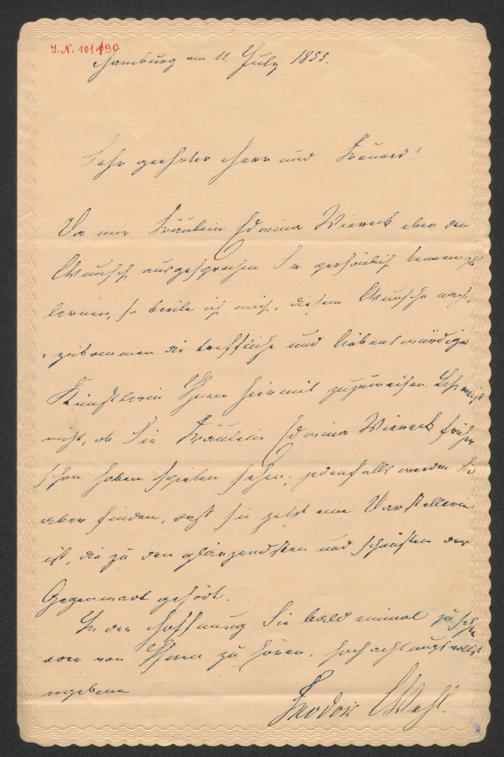 J. N. 101490
Hamburg am 11. July 1855.
Sehr geehrter Herr und Freund!
Da mir Fräulein Edwina Viereck eben den
Wunsch ausgesprochen Sie persönlich kennen zu
lernen, so beeile ich mich, diesem Wunsche nach-
zukommen die treffliche und liebenswürdige
Künstlerin Ihnen hiermit zuzuweisen. Ich weiß
nicht, ob Sie Fräulein Edwina Viereck früher
schon haben spielen sehen; jedenfalls werden Sie
aber finden, daß sie jetzt eine Darstellerin
ist, die zu den glänzendsten und schönsten der
Gegenwart gehört.
In der Hoffnung Sie bald einmal zu sehen
oder von Ihnen zu hören, hochachtungsvollst
ergebene
Feodor Wehl.